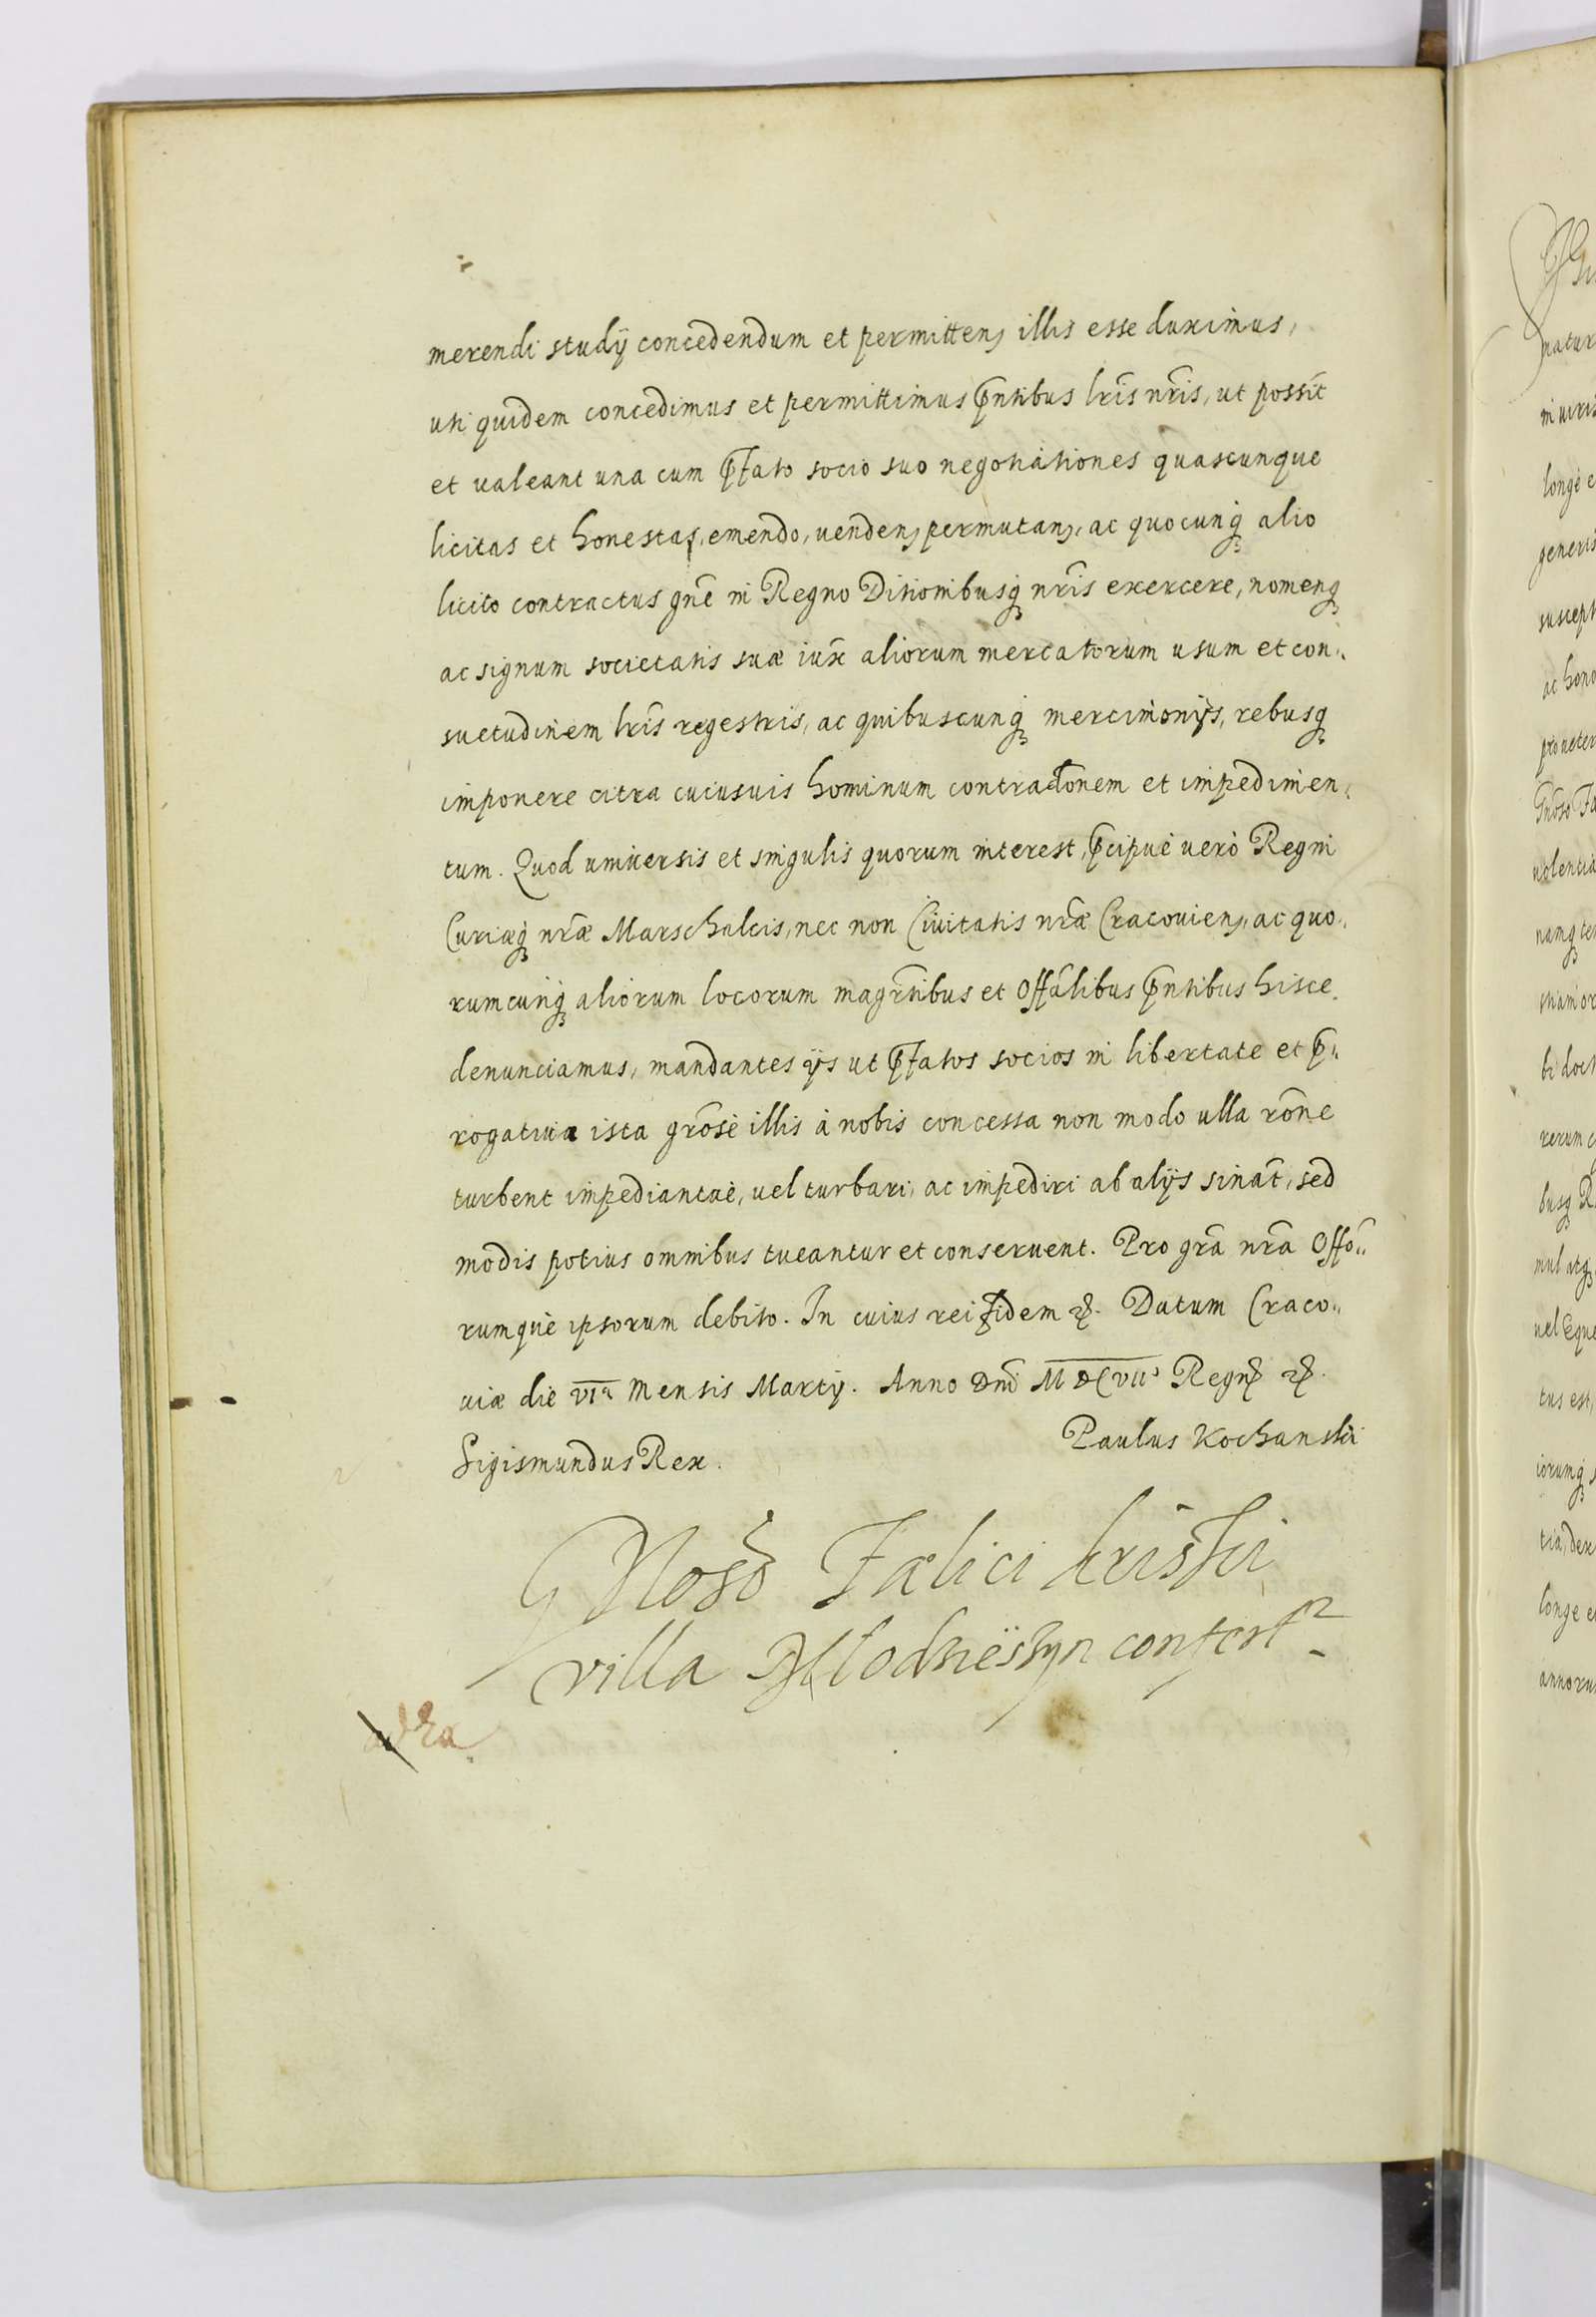 merendi studÿ concedendum et permitten, illis esse duximus,
uti quidem concedimus et permittimus pñtibus lrĩs nrĩs, ut possĩt
et ualeant una cum pfato socio suo negotiationes quascunque
licitas et honestas, emendo, uenden, permutan, ac quocunq alio
licito contractus gñe in Regno Ditionibusq nrĩs exercere, nomenq
ac signum societatis suæ iux̃ aliorum mercatorum usum et con„
suetudinem lrĩs regestris, ac quibuscunq mercimonijs, rebusq
imponere citra cuiusuis hominum contradc̃onem et impedimen„
tum. Quod uniuersis et singulis quorum interest, pcipuè uerò Regni
Curiæq nræ̃ Marschalcis, nec non Ciuitatis nræ̃ Cracouien, ac quo„
rumcunq aliorum locorum magrãtibus et Offãlibus pñtibus hisce
denunciamus, mandantes ijs ut pfatos socios in libertate et p„
rogatiua ista grõsè illis à nobis concessa non modo ulla rõne
turbent impediantuè, uel turbari, ac impediri ab alijs sinãt, sed
modis potius omnibus tueantur et conseruent. Pro grã nrã Offõ„
rumquè ipsorum debito. In cuius rei fidem &. Datum Craco„
uiæ die VIa Mensis Martij. Anno Dnĩ MDCVIIo Regn &.
Paulus Kochanski
Sigismundus Rex.
GNosõ Fælici kriski
villa